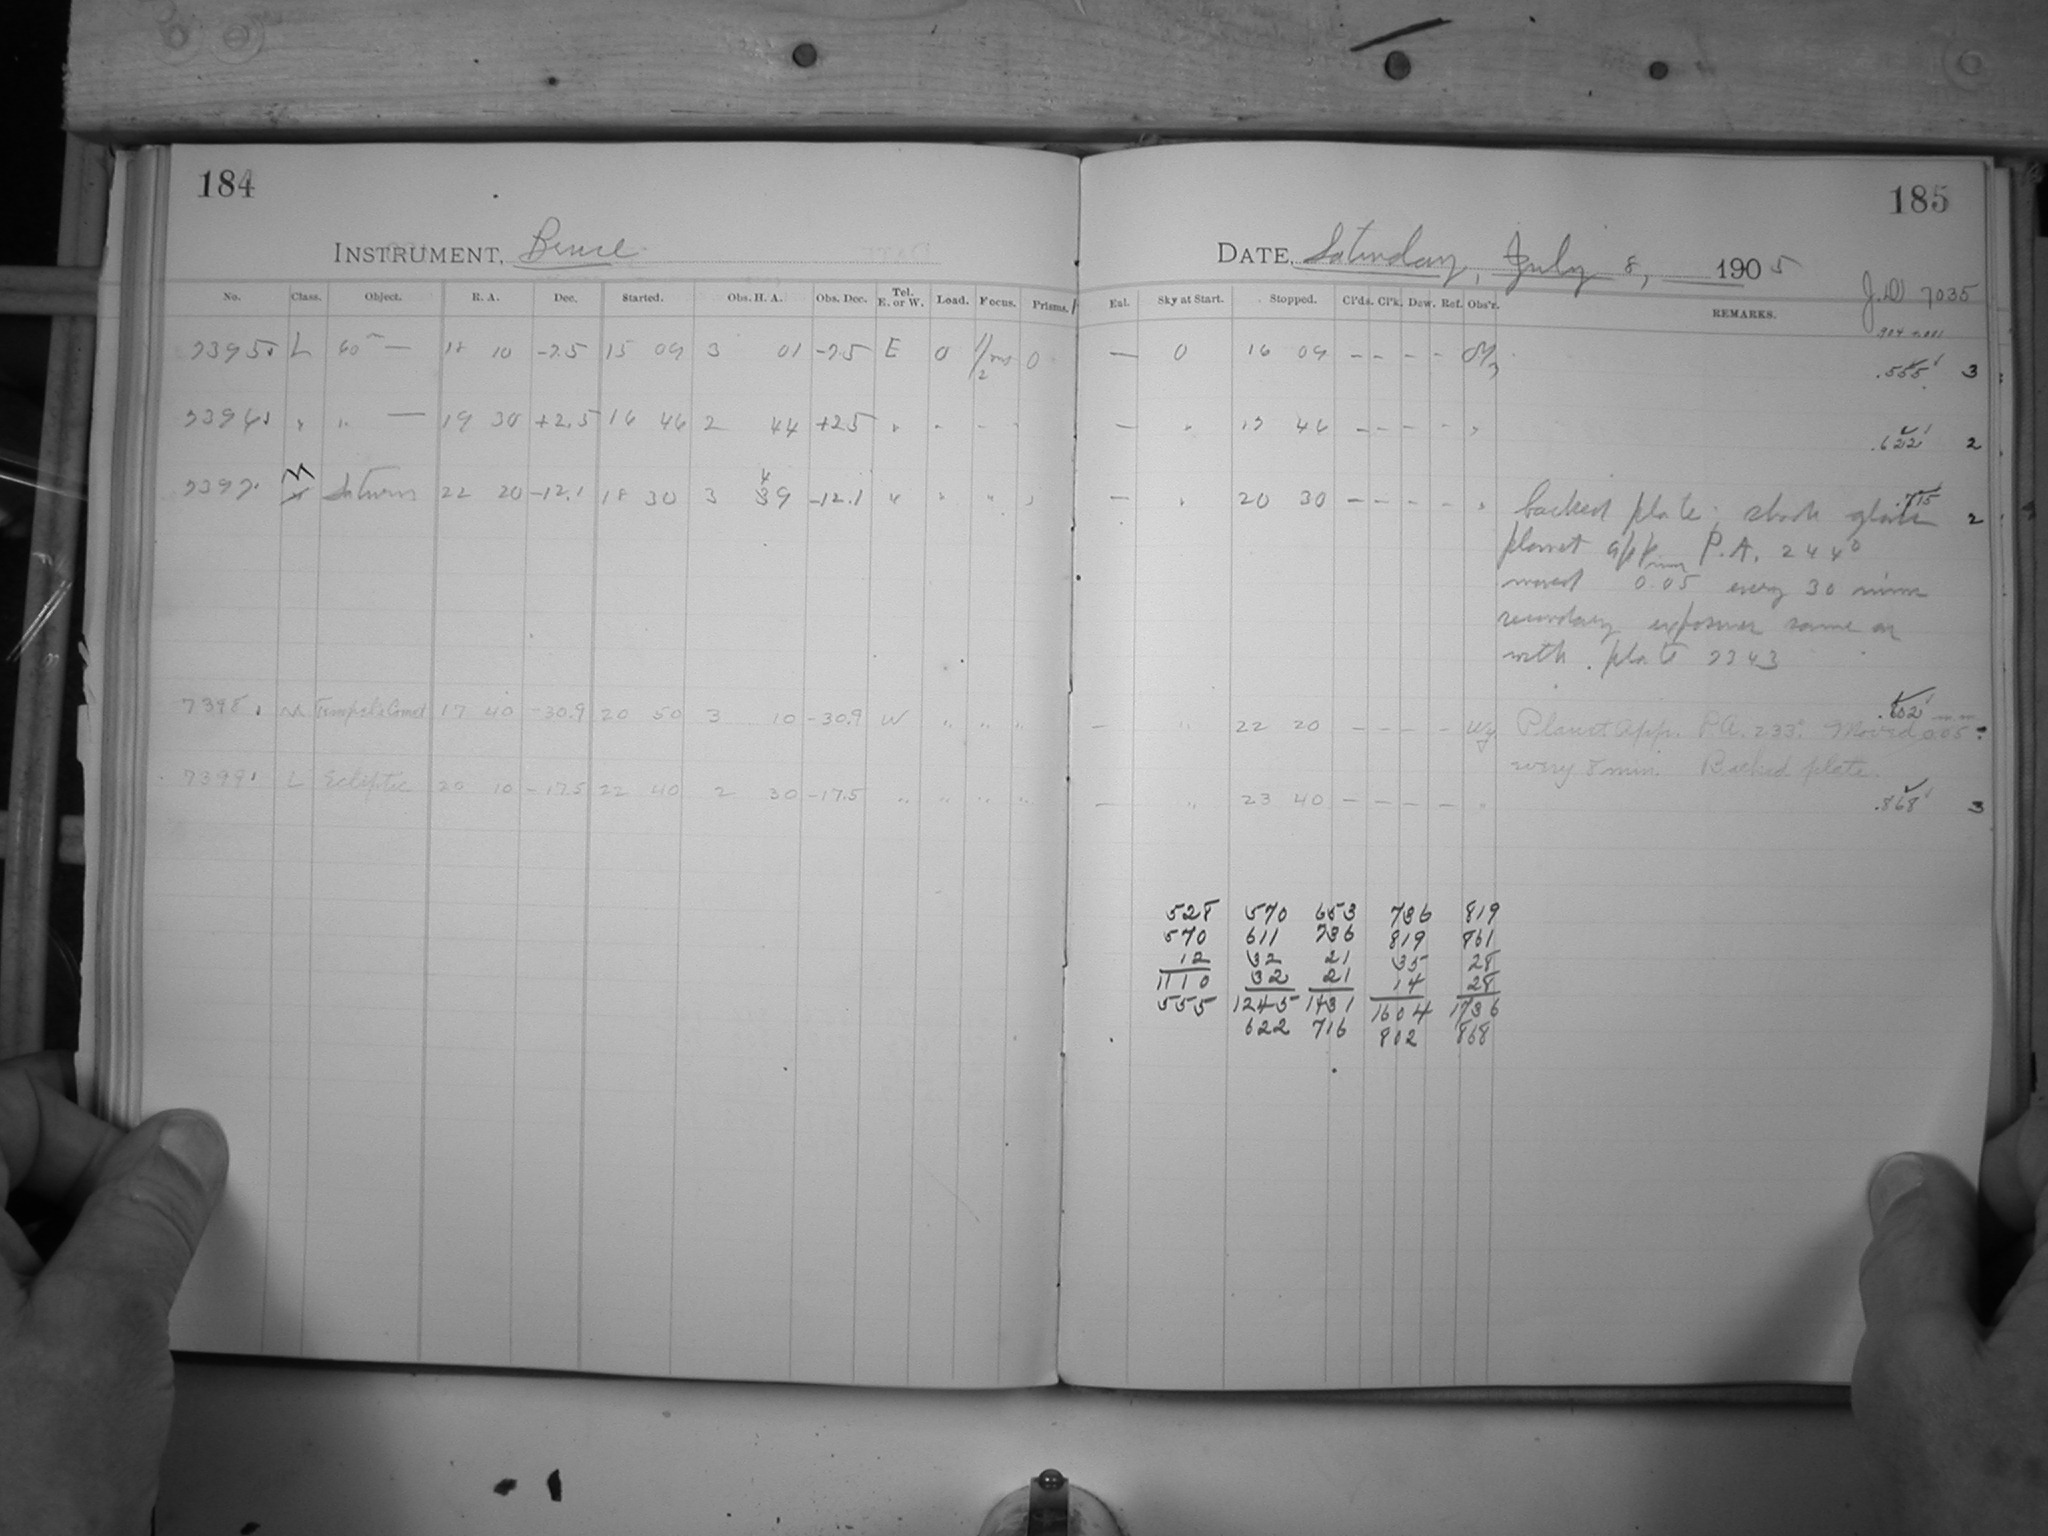 184
INSTRUMENT, Bruce
No. Class. Object. R. A. Dec. Started. Obs. H. A. Obs. Dec. Tel. E. or W. Load. Focus. Prisms.
7395 L 60m — 18 10 -7.5 15 09 3 01 -7.5 E 0 0
7396 " " — 19 30 +2.5 16 46 2 44 +2.5 " " - -
7397 M Saturn 22 20 -12.1 18 30 3 49 -12.1 " " " "
7398 M Tempel's Comet 17 40 -30.9 20 50 3 10 -30.9 W " " "
7399 L Ecliptic 20 10 -17.5 22 40 2 30 -17.5 " " " "
185
DATE, Saturday, July 8, 1905
J.D. 7035
Eal. Sky at Start. Stopped. Cl'ds. Cl'k. Dew. Ref. Obs'r. REMARKS.
— 0 16 09 - - - - .555 3
— " 17 46 - - - - " .622 2
— " 20 30 - - - - " backed plate; .715 2
planet app. P.A. 244°
moved 0.05 mm every 30 mins
secondary exposures same as
with plate 7743
— " 22 20 - - - - Planet app. P.A. 233°. Moved 0.05 mm .802
every 8 min. Backed plate.
— " 23 40 - - - - " .868 3
528 570 653 736 819
570 611 736 819 861
12 32 21 35 28
1110 32 21 14 28
555 1245 1431 1604 1736
622 716 802 868